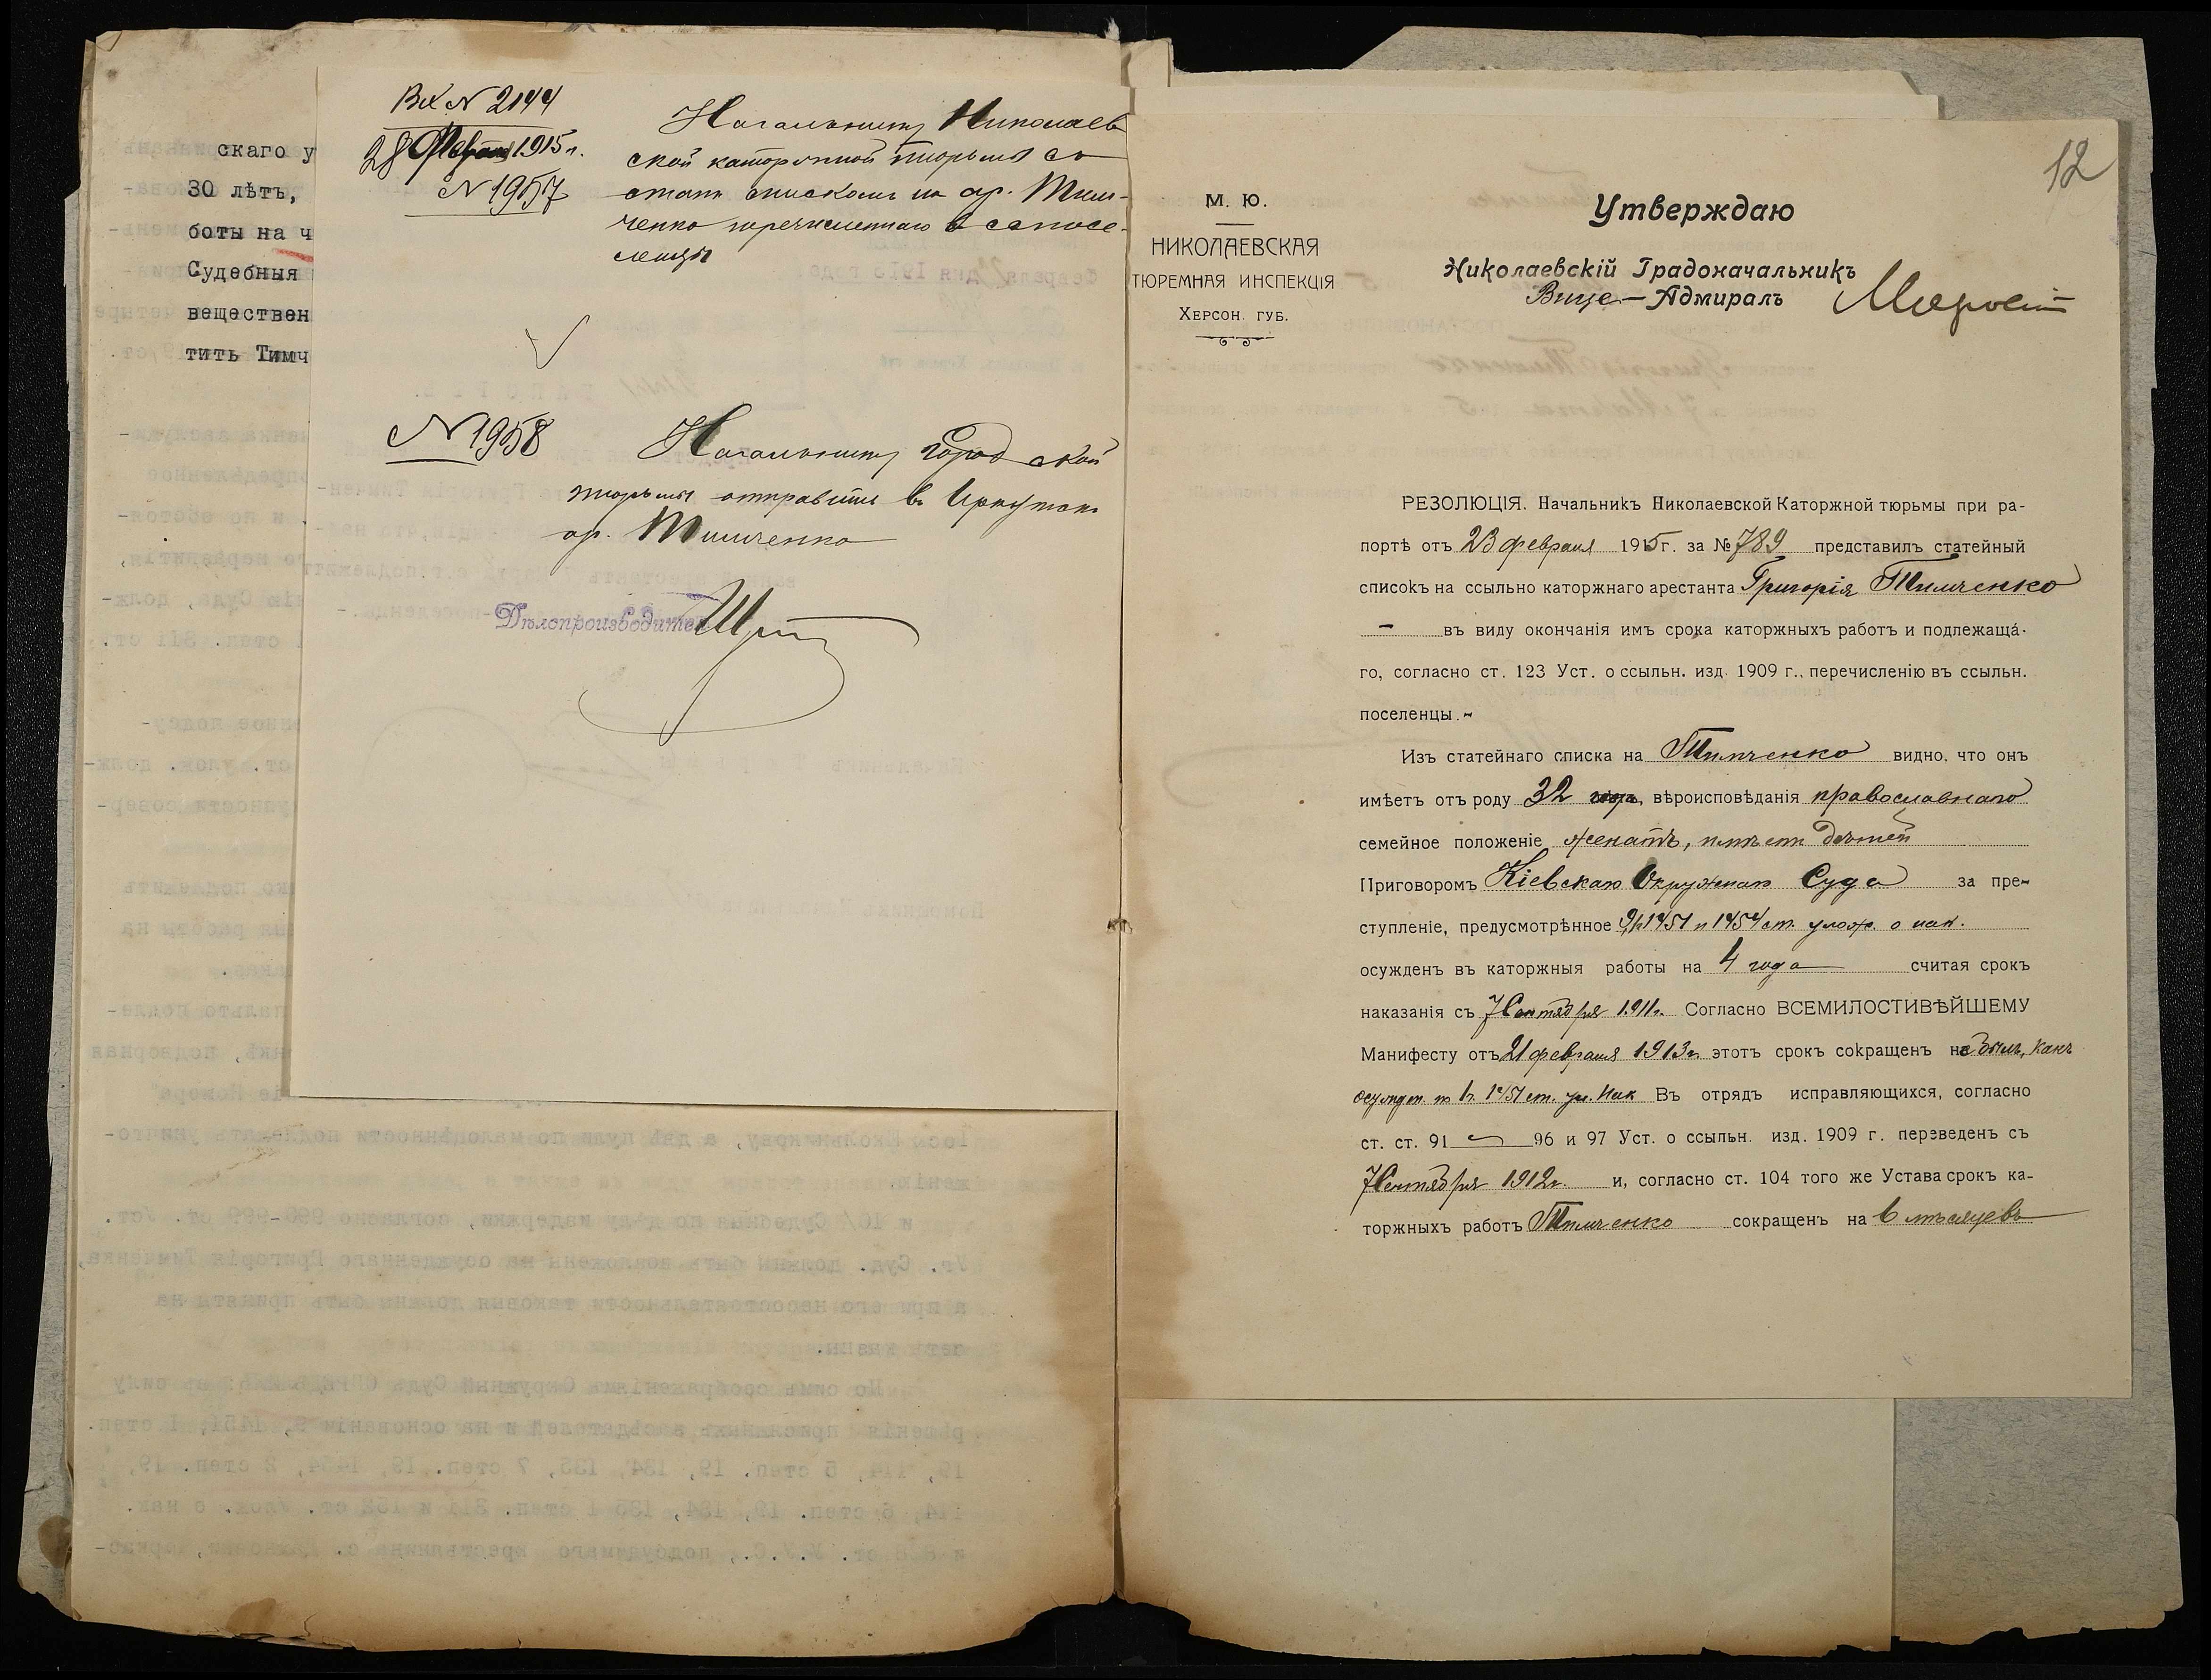 скаго у
30 лѣтъ,
боты на ч
Судебныя
веществен
тить Тимч
Вх № 2144
28 Февраля 1915 г.
№ 1957
Начальнику Николаев
ской каторжной тюрьмы со
стат. списком на ар. Тим-
ченко перечисленнаго в ссе
№ 1958
Начальнику городской
тюрьмы отправить в Иркутск
ар. Тимченко
Дѣлопроизводитель
12
М. Ю.
НИКОЛАЕВСКАЯ
ТЮРЕМНАЯ ИНСПЕКЦІЯ
ХЕРСОН. ГУБ.
Утверждаю
Николаевскій Градоначальникъ
Вице-Адмиралъ
РЕЗОЛЮЦІЯ. Начальникъ Николаевской Каторжной тюрьмы при ра-
портѣ отъ 23 февраля 1915 г. за № 789 представилъ статейный
списокъ на ссыльно каторжнаго арестанта Григорія Тимченко
- въ виду окончанія имъ срока каторжныхъ работъ и подлежаща-
го, согласно ст. 123 Уст. о ссыльн. изд. 1909 г., перечисленію въ ссыльн.
поселенцы.
Изъ статейнаго списка на Тимченко видно, что онъ
имѣетъ отъ роду 32 года, вѣроисповѣданія православнаго
семейное положеніе женатъ, имѣетъ дѣтей
Приговоромъ Кіевскаго Окружнаго Суда за пре-
ступленіе, предусмотрѣнное 9, 1451 и 1454 ст. улож. о нак.
осужденъ въ каторжныя работы на 4 года считая срокъ
наказанія съ 7 Сентября 1911 г. Согласно ВСЕМИЛОСТИВѢЙШЕМУ
Манифесту отъ 21 февраля 1913 г. этотъ срокъ сокращенъ не былъ, какъ
осужден. по 1451 ст. ул. Нак Въ отрядъ исправляющихся, согласно
ст. ст. 91 96 и 97 Уст. о ссыльн. изд. 1909 г. переведенъ съ
7 Сентября 1912 г. и, согласно ст. 104 того же Устава срокъ ка-
торжныхъ работъ Тимченко сокращенъ на 6 мѣсяцевъ